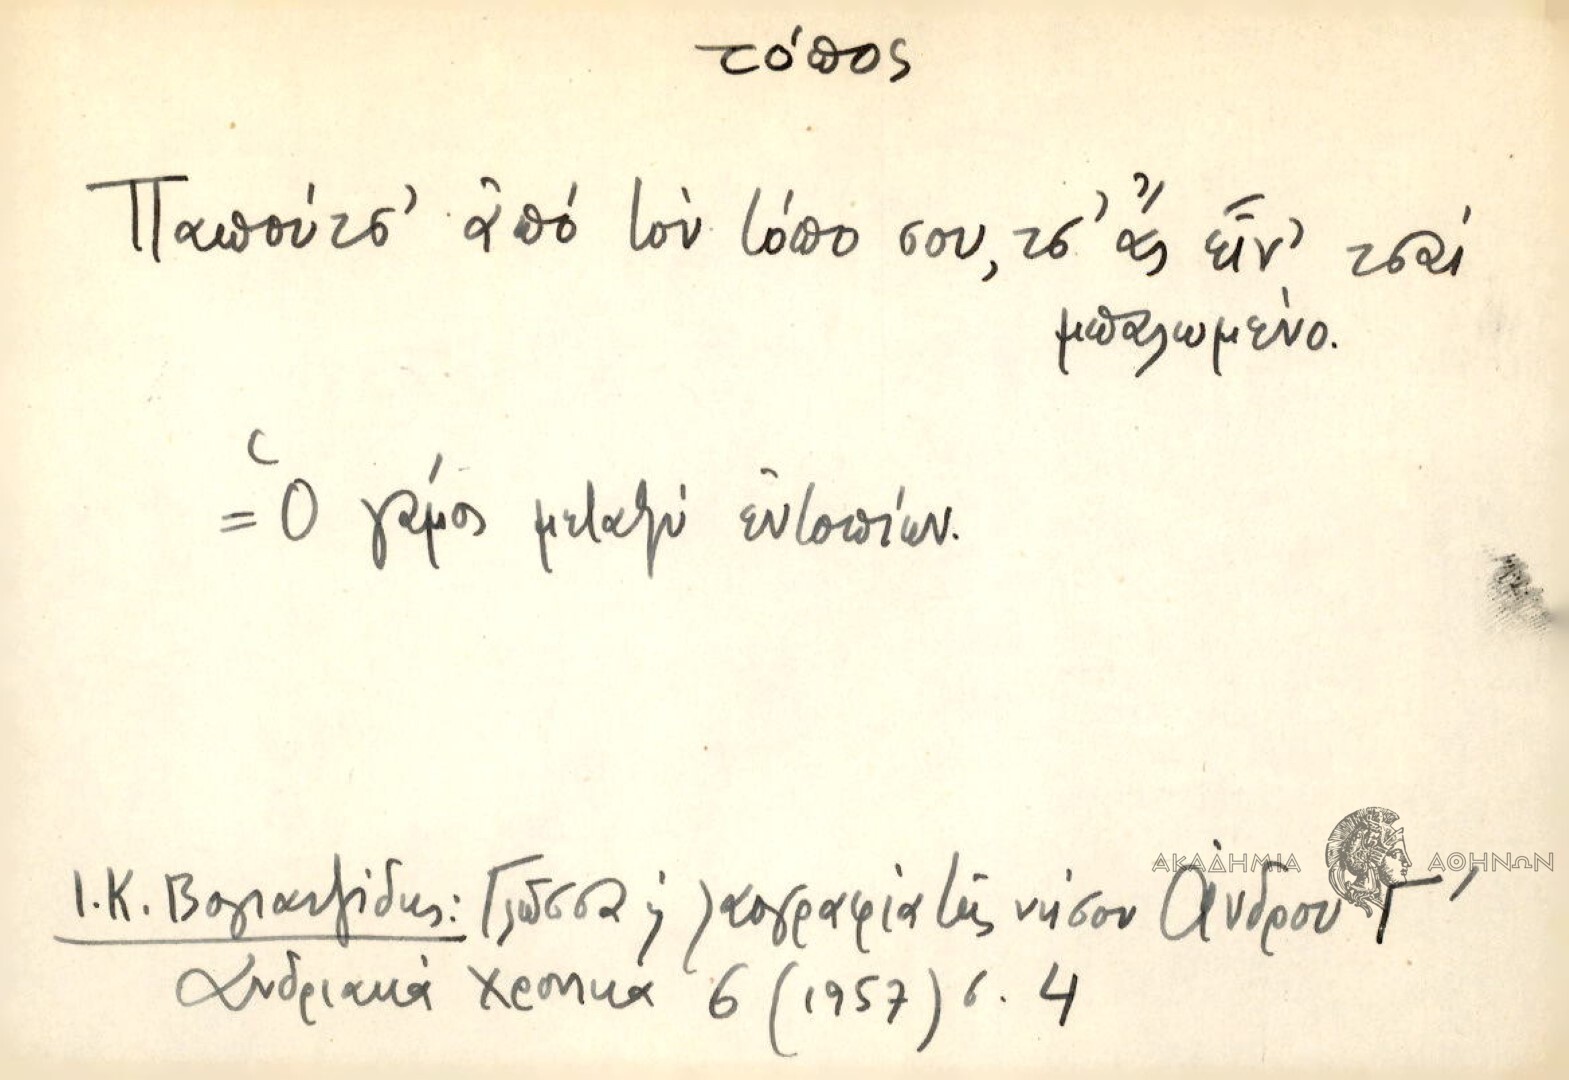 τόπος
Παπούτσ' ἀπό τόν τόπο σου, τσ' ἄς εἶν' τσαί
μπαλωμένο.
= Ὁ γάμος μεταξύ ἐντοπίων.
Ι. Κ. Βογιατζίδης: Γλῶσσα καί λαογραφία τῆς νήσου Ἄνδρου Γ'
Ἀνδριακά Χρονικά 6 (1957) σ. 4
ΑΚΑΔΗΜΙΑ ΑΘΗΝΩΝ